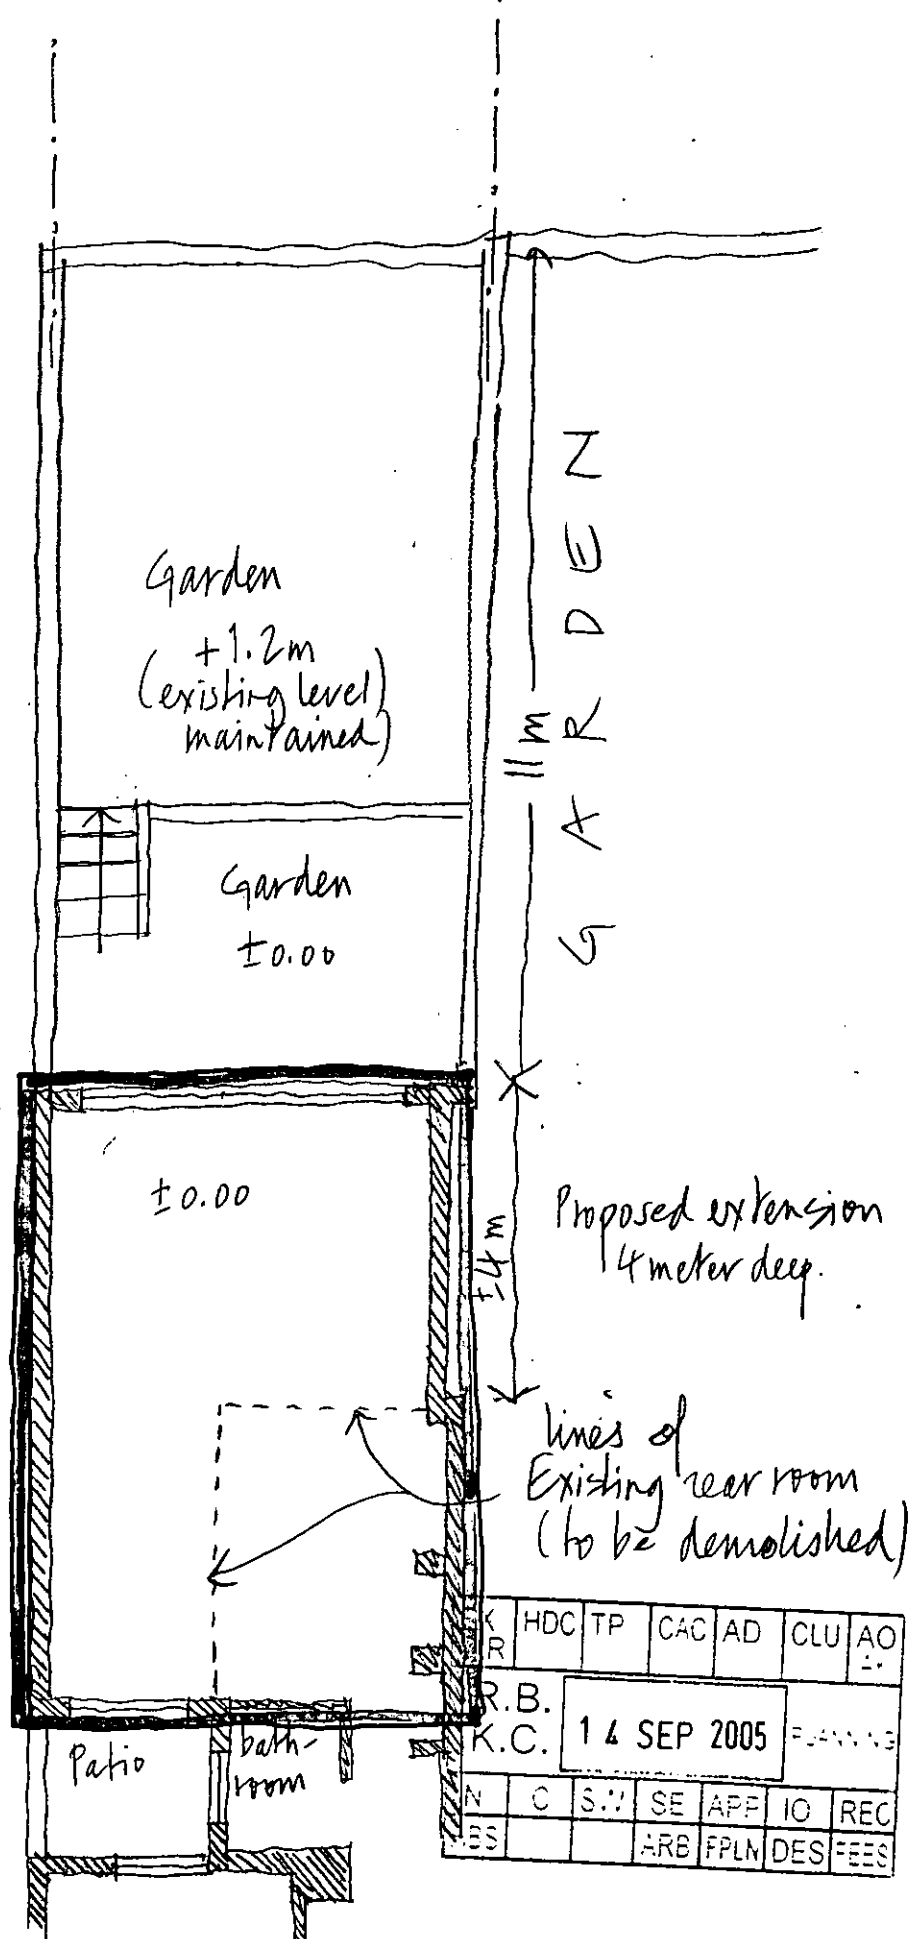 Garden
+1.2m
(existing level)
maintained)
GARDEN
11m
Garden
±0.00
±0.00
±4m
Proposed extension
4 meter deep.
lines of
Existing rear room
(to be demolished)
Patio
bath-
room
R HDC TP CAC AD CLU AO
R.B.
K.C.
14 SEP 2005
PLANNING
N C SW SE APP IO REC
ARB FPLN DES FEES